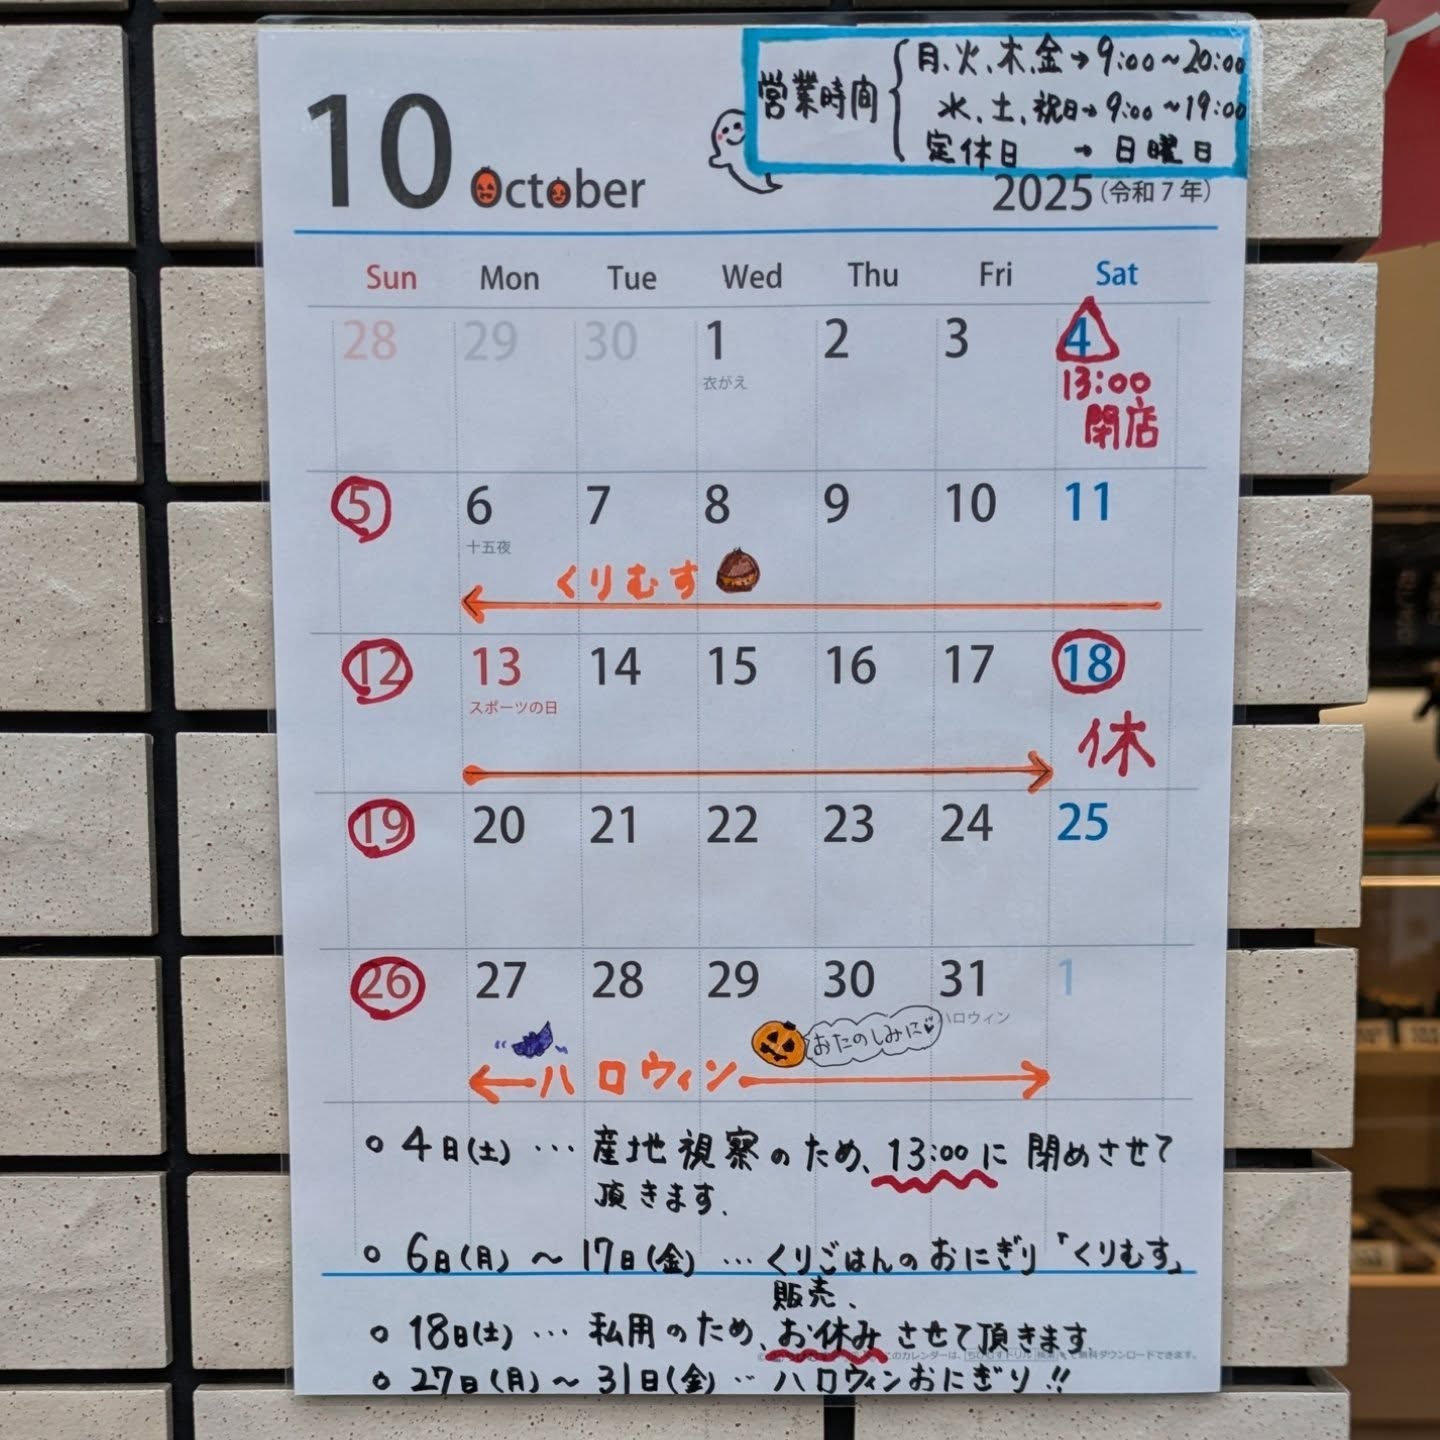 営業時間
月、火、木、金→9:00~20:00
水、土、祝日→9:00~19:00
定休日 → 日曜日
10 October
2025(令和7年)
Sun Mon Tue Wed Thu Fri Sat
28 29 30 1 2 3 4
衣がえ
13:00
閉店
5 6 7 8 9 10 11
十五夜
くりむす
12 13 14 15 16 17 18
スポーツの日
休
19 20 21 22 23 24 25
26 27 28 29 30 31 1
ハロウィン
おたのしみに
ハロウィン
○ 4日(土) … 産地視察のため、13:00に閉めさせて
頂きます.
○ 6日(月) ~ 17日(金) … くりごはんのおにぎり「くりむす」
販売、
○ 18日(土) … 私用のため、お休みさせて頂きます.
このカレンダーは、[ちびむすドリル 検索]で無料ダウンロードできます。
○ 27日(月) ~ 31日(金) … ハロウィンおにぎり!!